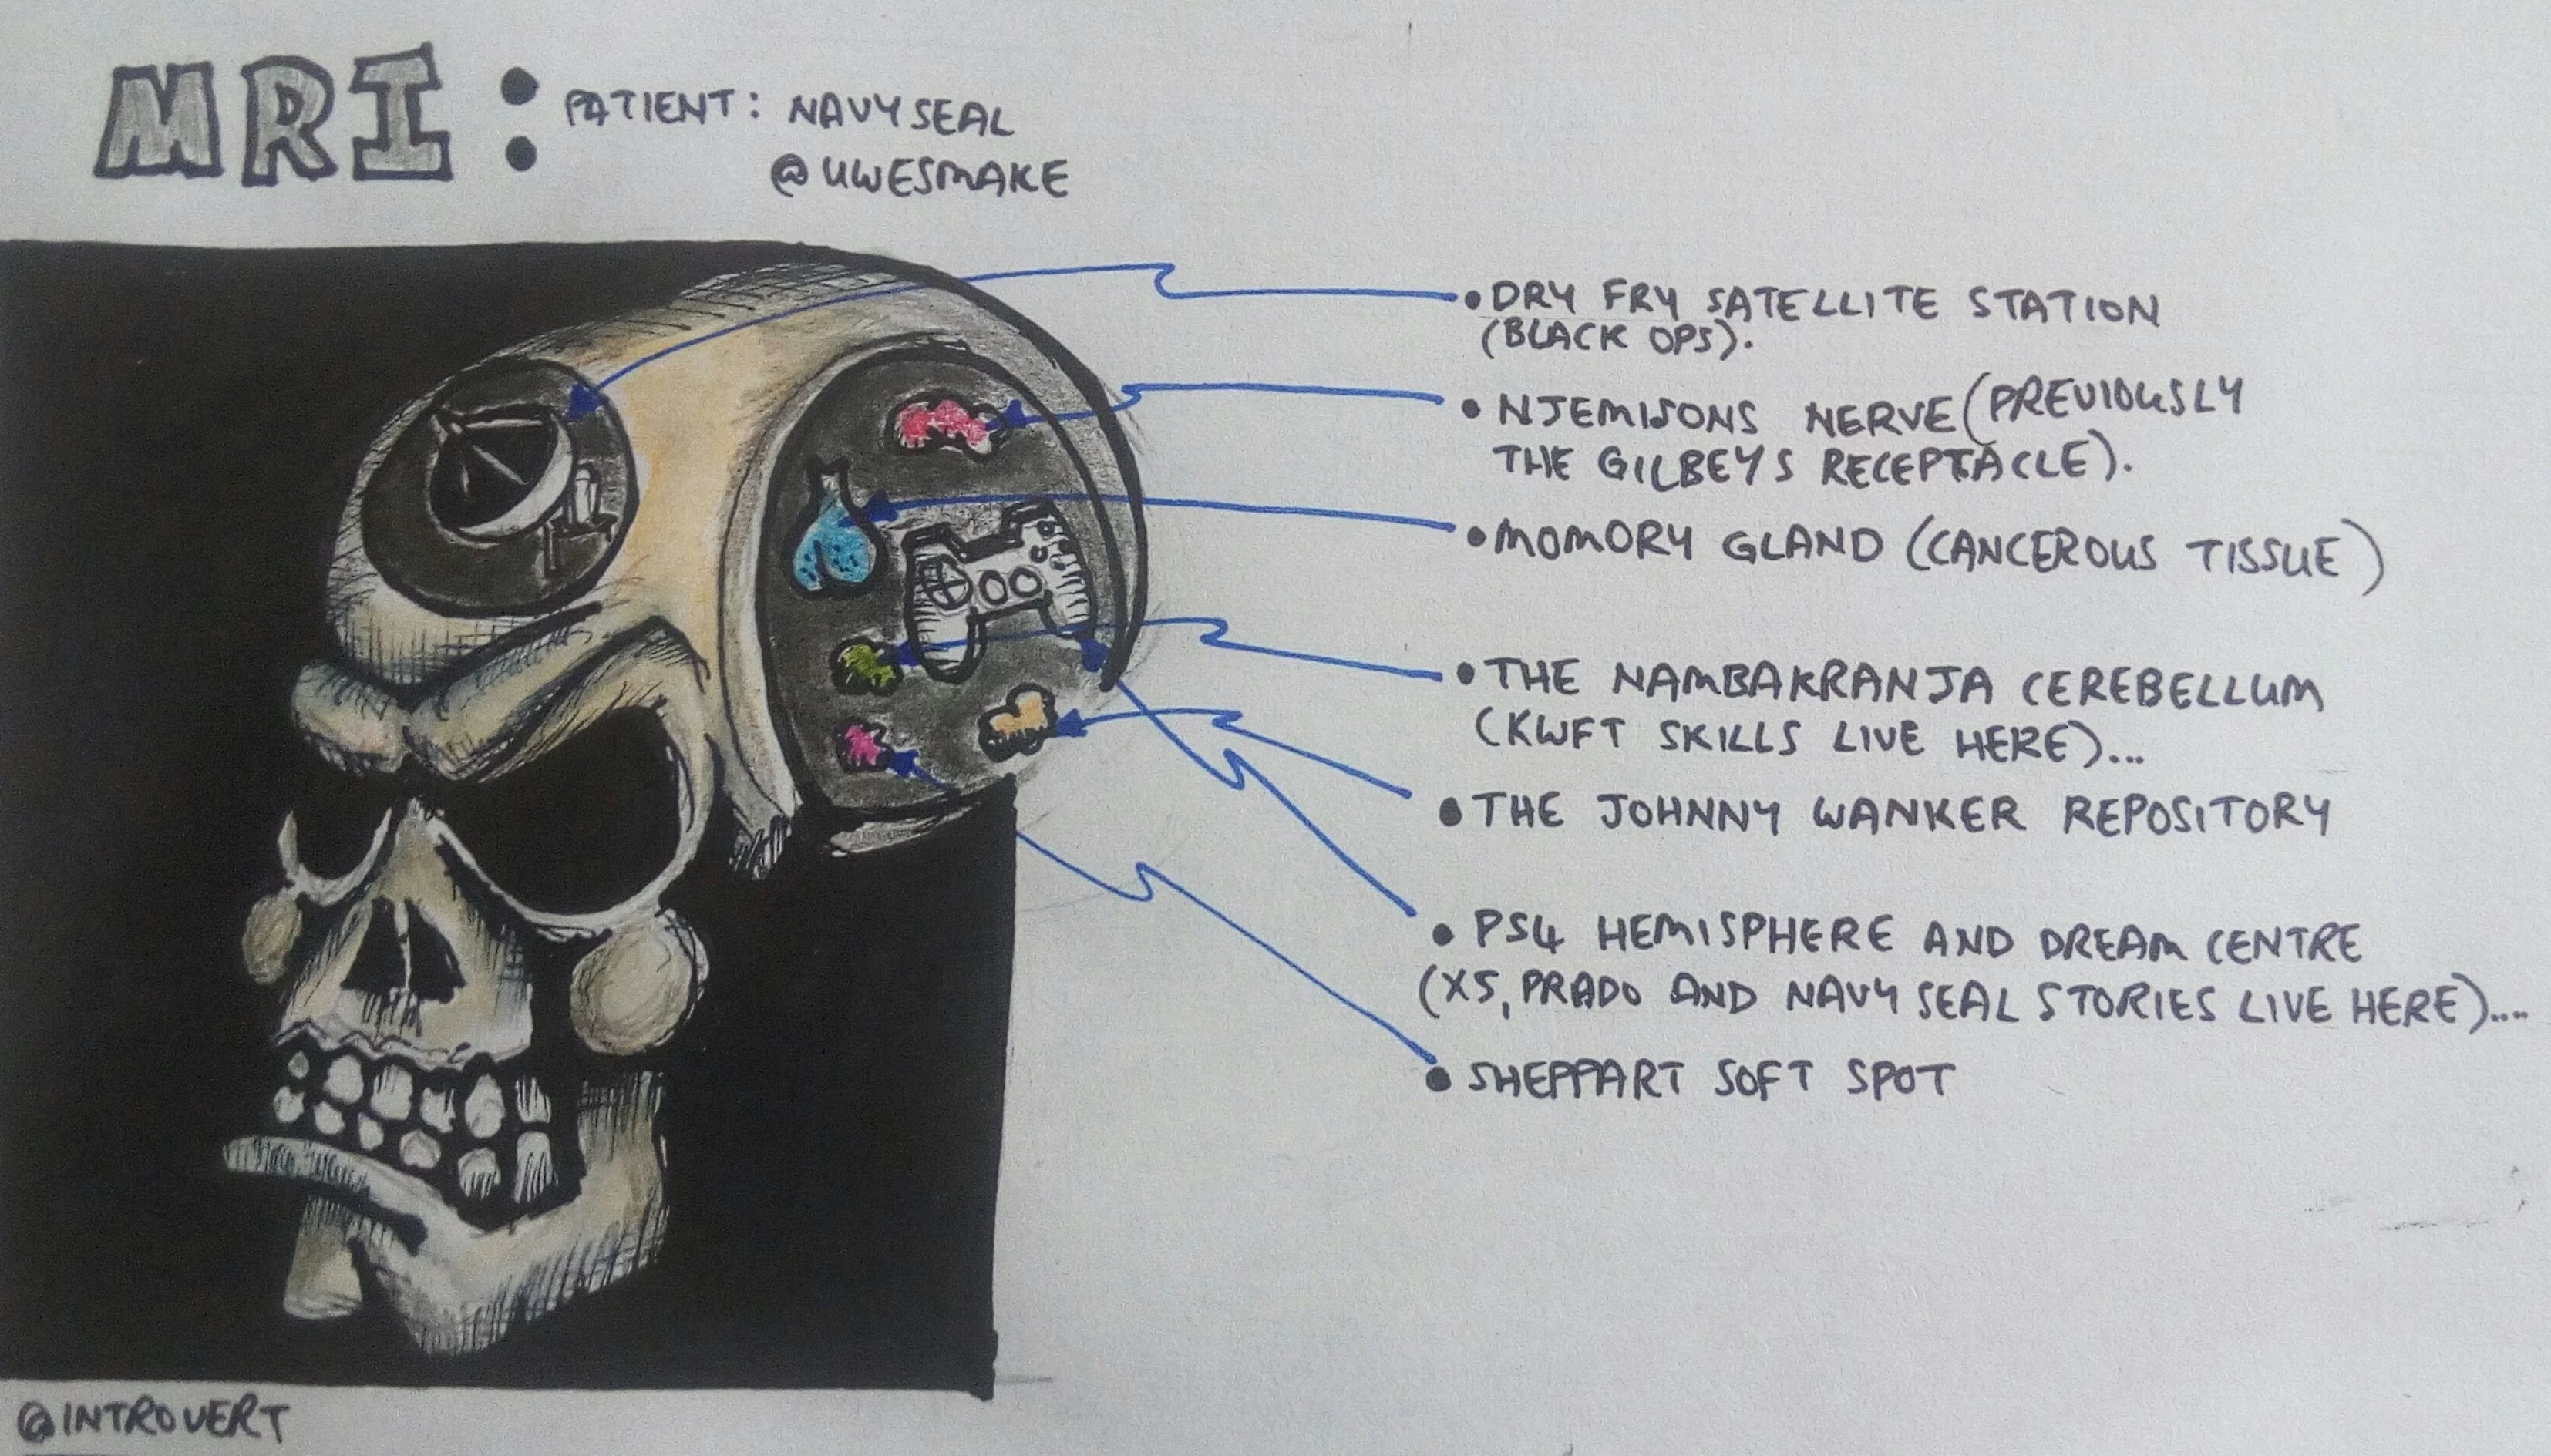 MRI: PATIENT: NAVY SEAL
@UWESMAKE
• DRY FRY SATELLITE STATION
(BLACK OPS).
• NJEMISONS NERVE (PREVIOUSLY
THE GILBEYS RECEPTACLE).
• MOMORY GLAND (CANCEROUS TISSUE)
• THE NAMBAKRANJA CEREBELLUM
(KWFT SKILLS LIVE HERE)...
• THE JOHNNY WANKER REPOSITORY
• PS4 HEMISPHERE AND DREAM CENTRE
(X5, PRADO AND NAVY SEAL STORIES LIVE HERE)....
• SHEPPART SOFT SPOT
@INTROVERT